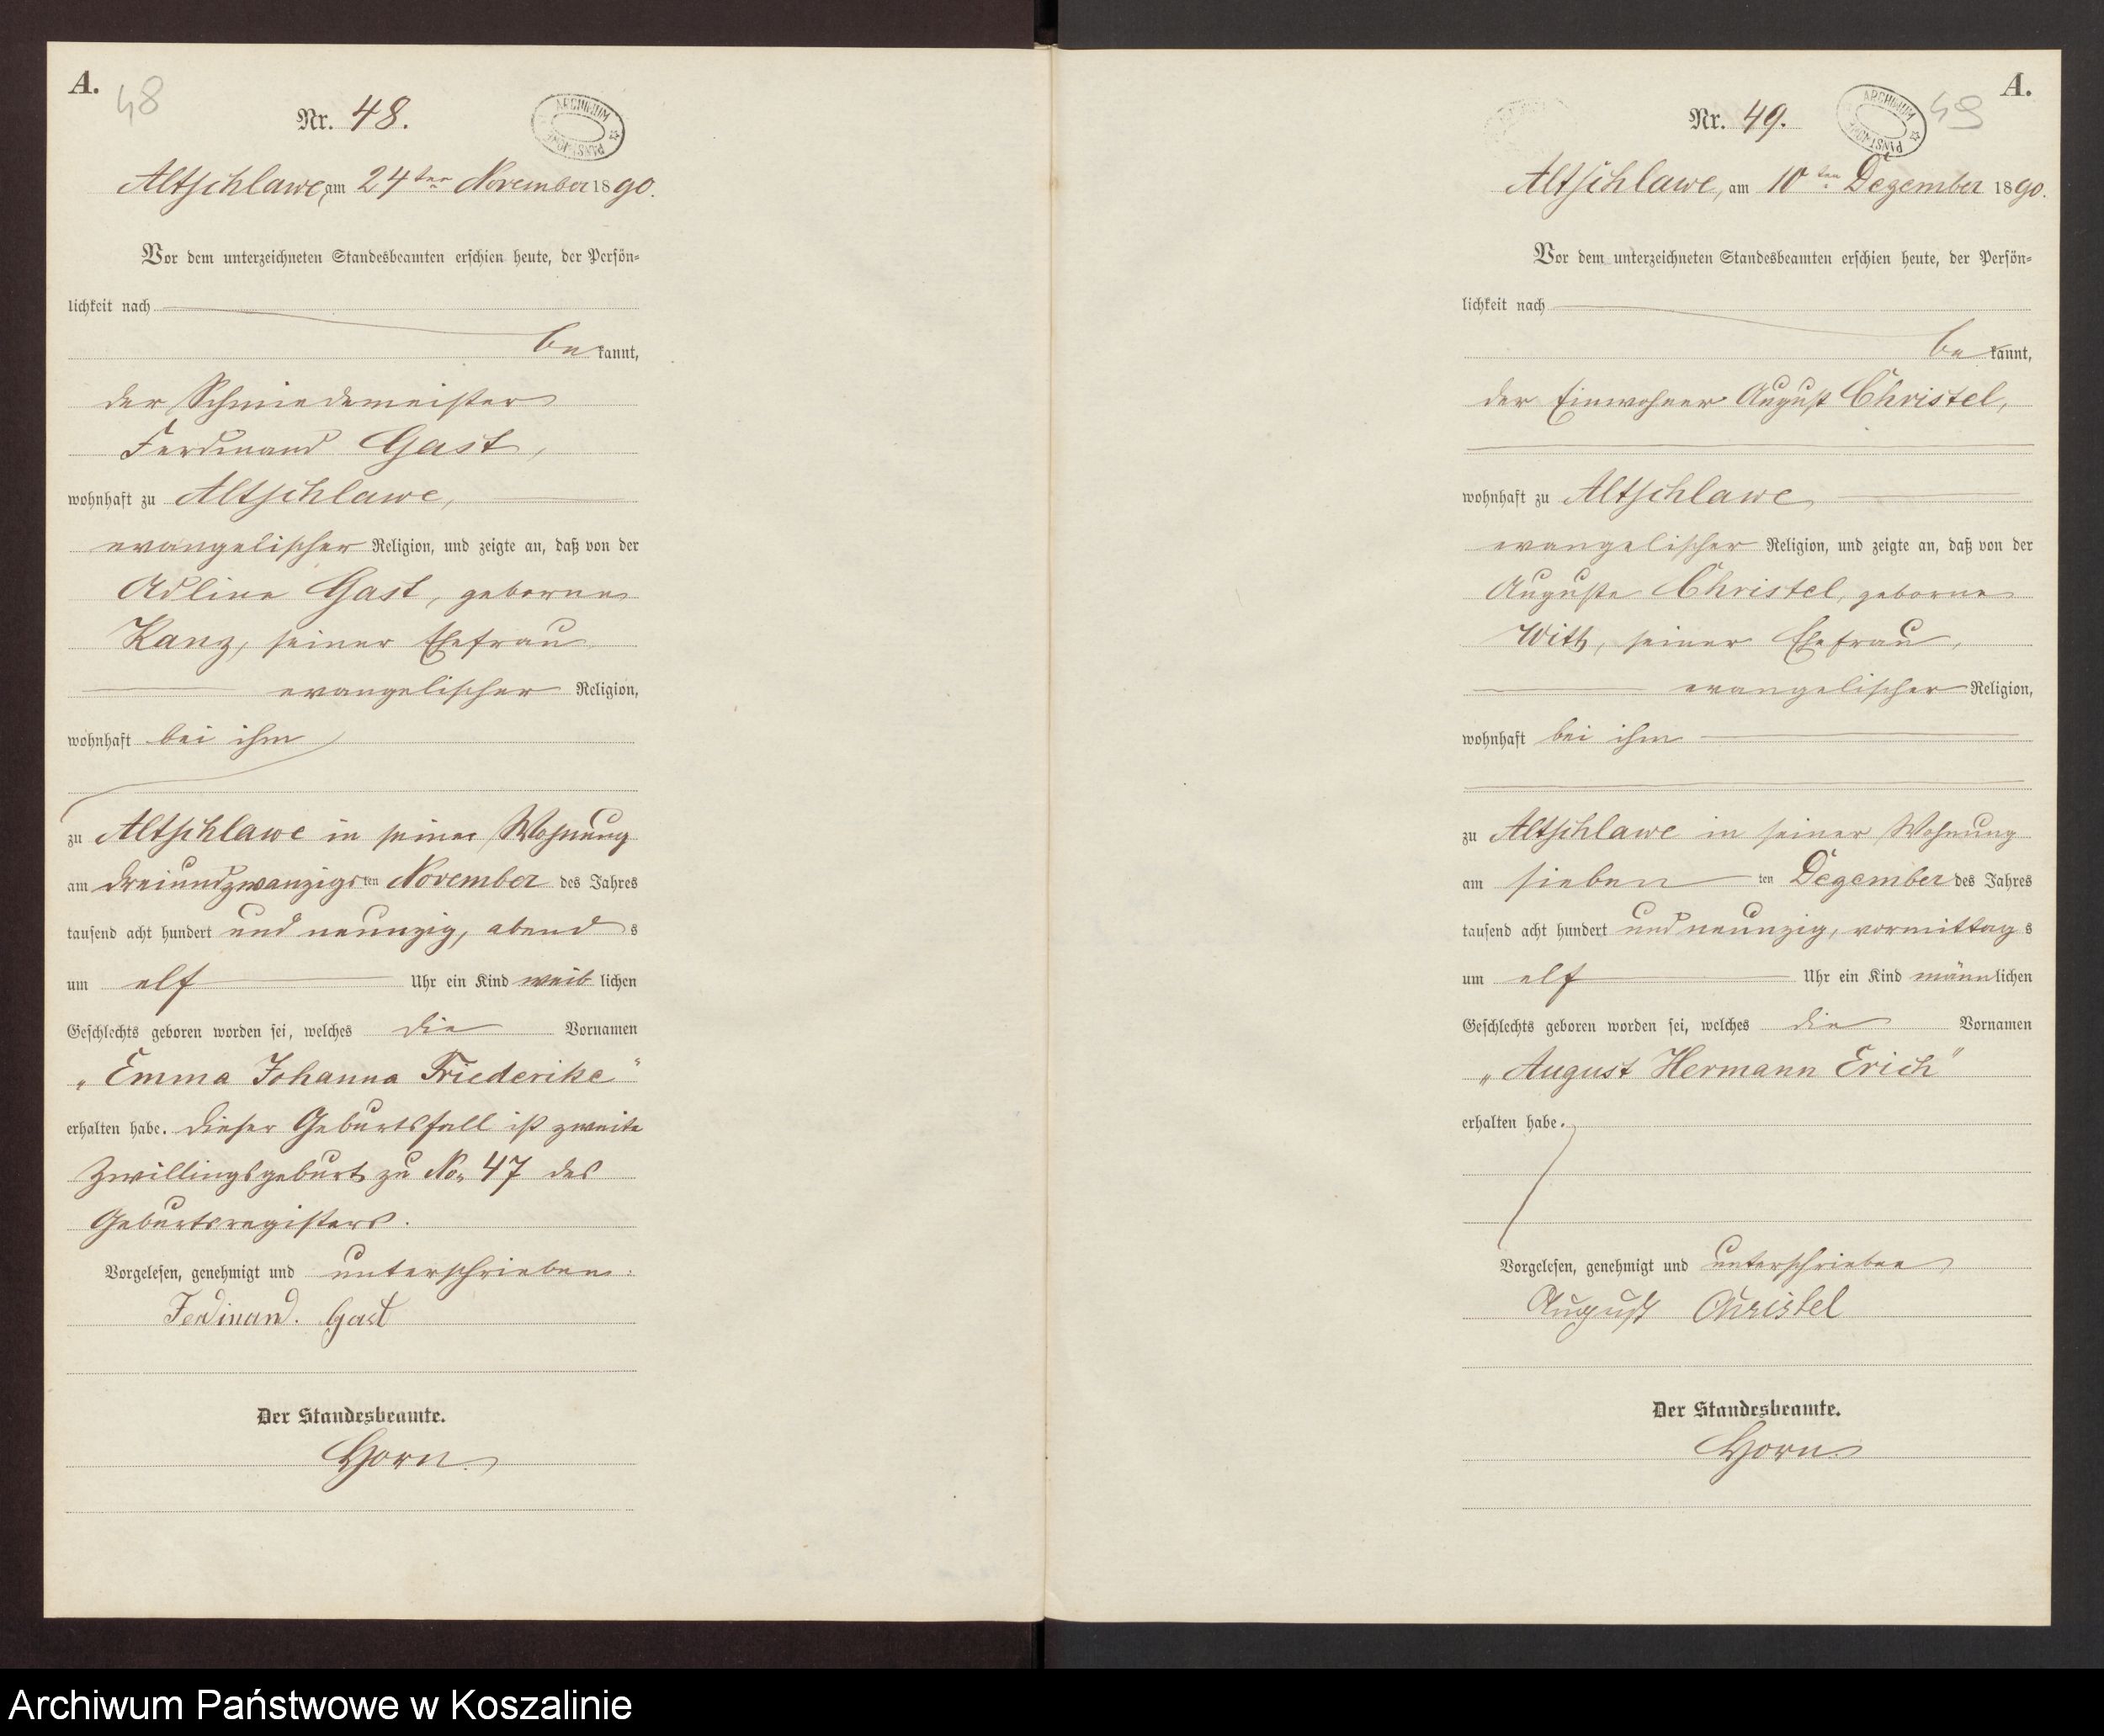 A.
48
Nr. 48.
ARCHIWUM PAŃSTWOWE
Altschlawe, am 24ten November 1890.
Vor dem unterzeichneten Standesbeamten erschien heute, der Persön-
lichkeit nach
bekannt,
der Schmiedemeister
Ferdinand Gast,
wohnhaft zu Altschlawe,
evangelischer Religion, und zeigte an, daß von der
Adline Gast, geborne
Kanz, seiner Ehefrau
evangelischer Religion,
wohnhaft bei ihm
zu Altschlawe in seiner Wohnung
am dreiundzwanzigsten November des Jahres
tausend acht hundert und neunzig, abends
um elf Uhr ein Kind weiblichen
Geschlechts geboren worden sei, welches die Vornamen
„Emma Johanna Friederike"
erhalten habe. Dieser Geburtsfall ist zweite
Zwillingsgeburt zu No. 47 des
Geburtsregisters.
Vorgelesen, genehmigt und unterschrieben:
Ferdinand. Gast
Der Standesbeamte.
Horn.
A.
49
Nr. 49.
ARCHIWUM PAŃSTWOWE
Altschlawe, am 10ten Dezember 1890.
Vor dem unterzeichneten Standesbeamten erschien heute, der Persön-
lichkeit nach
bekannt,
der Einwohner August Christel,
wohnhaft zu Altschlawe
evangelischer Religion, und zeigte an, daß von der
Auguste Christel, geborne
Witt, seiner Ehefrau,
evangelischer Religion,
wohnhaft bei ihm
zu Altschlawe in seiner Wohnung
am siebenten Dezember des Jahres
tausend acht hundert und neunzig, vormittags
um elf Uhr ein Kind männlichen
Geschlechts geboren worden sei, welches die Vornamen
„August Hermann Erich"
erhalten habe.
Vorgelesen, genehmigt und unterschrieben
August Christel
Der Standesbeamte.
Horn.
Archiwum Państwowe w Koszalinie